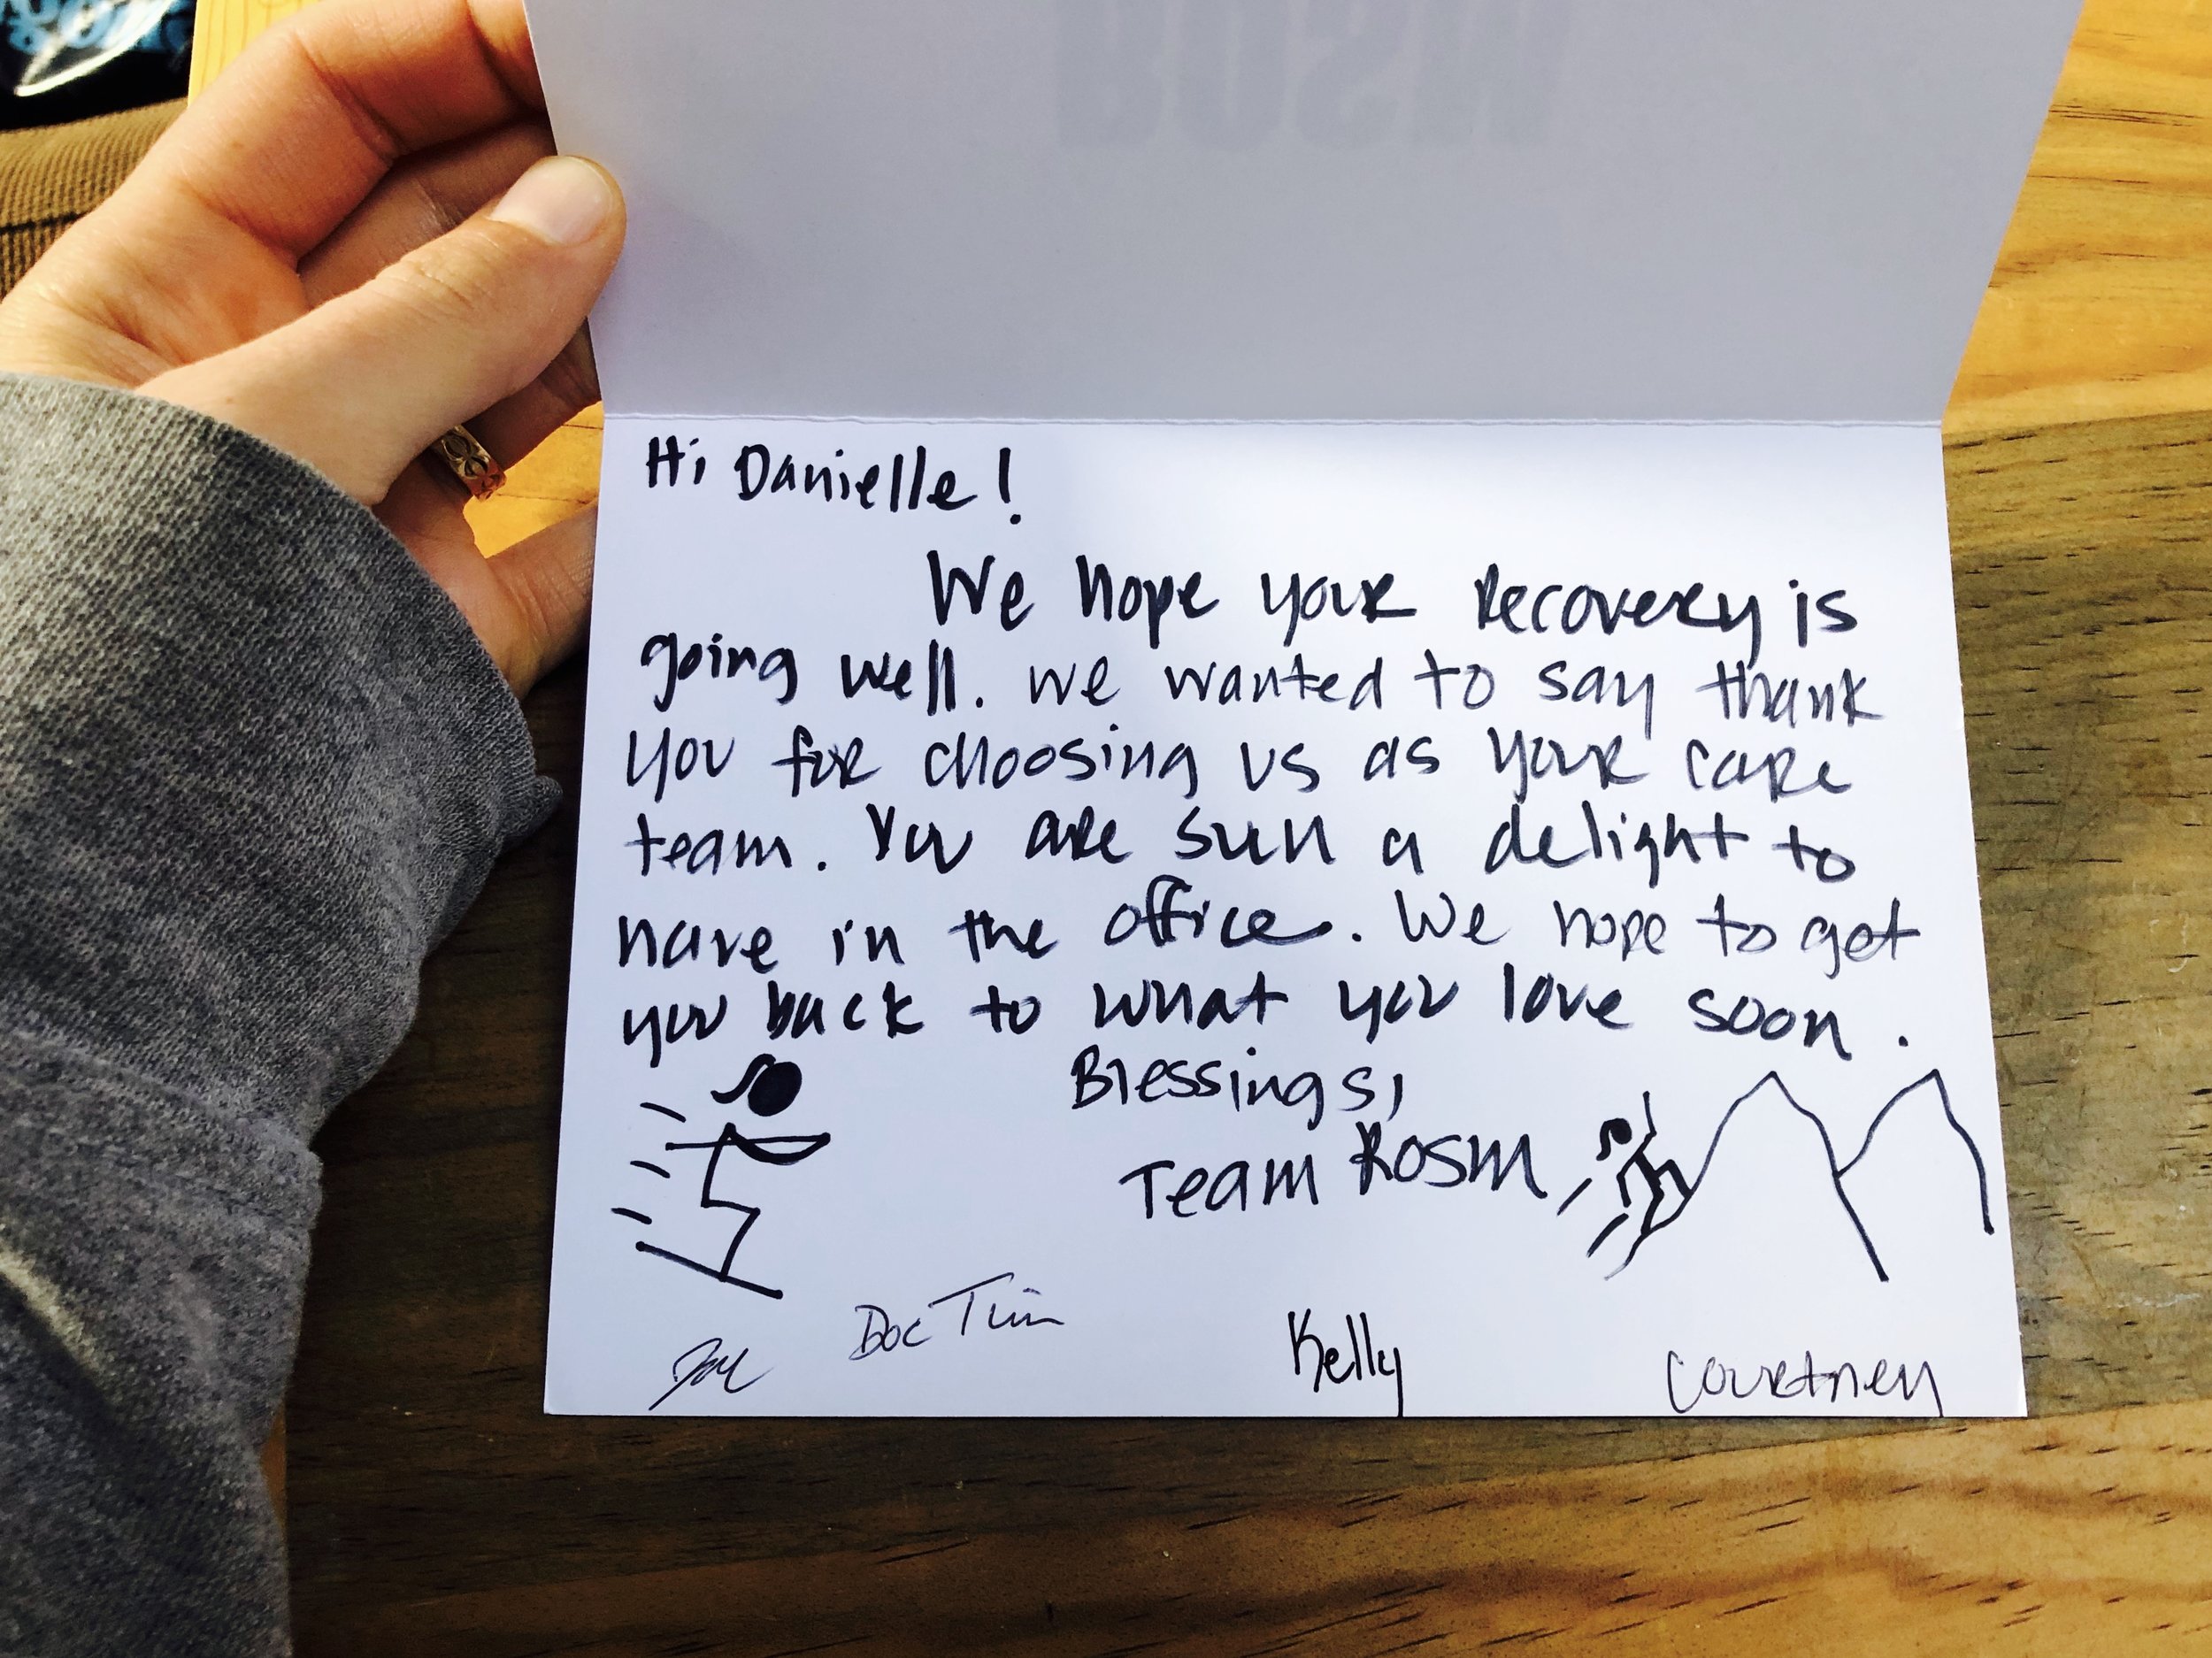 Hi Danielle!
We hope your recovery is
going well. We wanted to say thank
you for choosing us as your care
team. You are such a delight to
have in the office. We hope to get
you back to what you love soon.
Blessings,
Team ROSM
Doc Tim
Kelly
Courtney